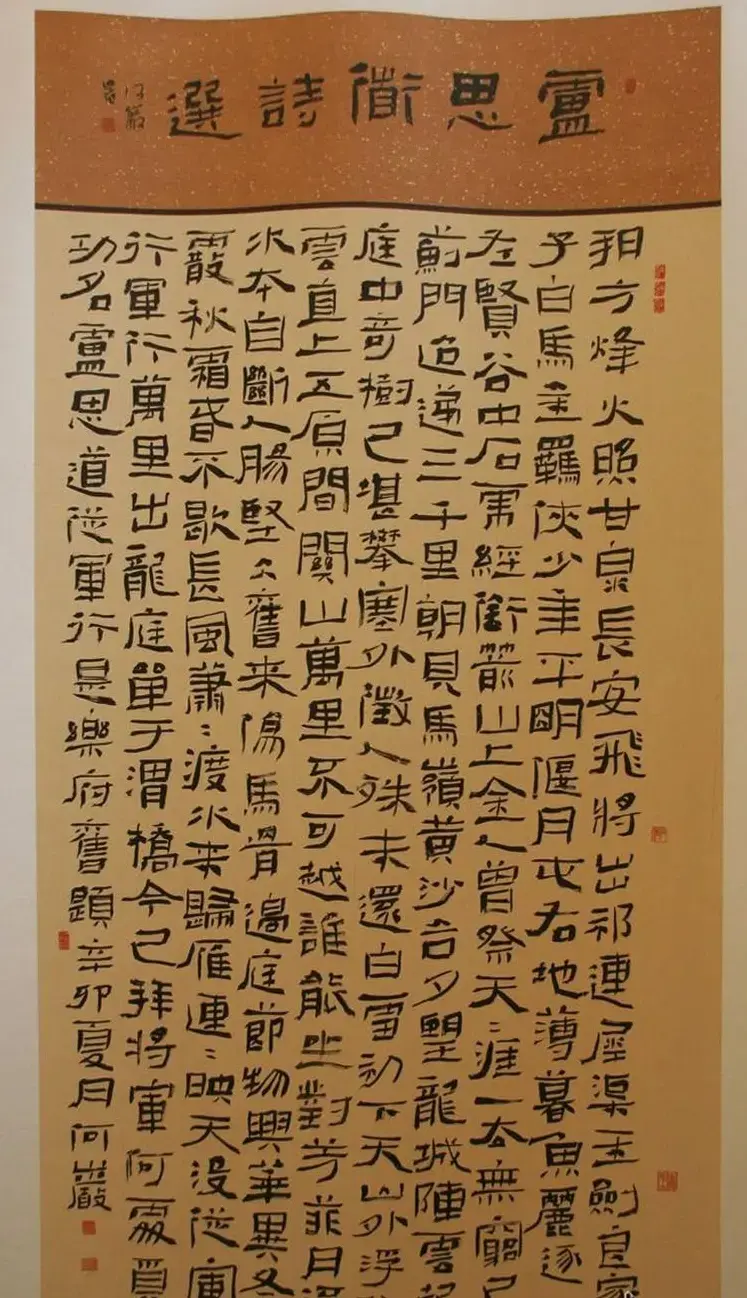 盧思衜詩選
何巖
朔方烽火照甘泉長安飛將出祁連犀渠玉劍良家
子白馬金羈俠少年平明偃月屯右地薄暮魚麗逐
左賢谷中石虎經銜箭山上金人曾祭天〻涯一去無窮已
薊門迢遞三千里朝見馬嶺黃沙合夕望龍城陣雲起
庭中奇樹已堪攀塞外徵人殊未還白雪初下天山外浮
雲直上五原間關山萬里不可越誰能坐對芳菲月
水本自斷人腸堅冰舊來傷馬骨邊庭節物與華異冬
霰秋霜春不歇長風蕭〻渡水來歸雁連〻映天沒從軍
行軍行萬里出龍庭單于渭橋今已拜將軍何處覓
功名盧思道從軍行是樂府舊題辛卯夏月何巖